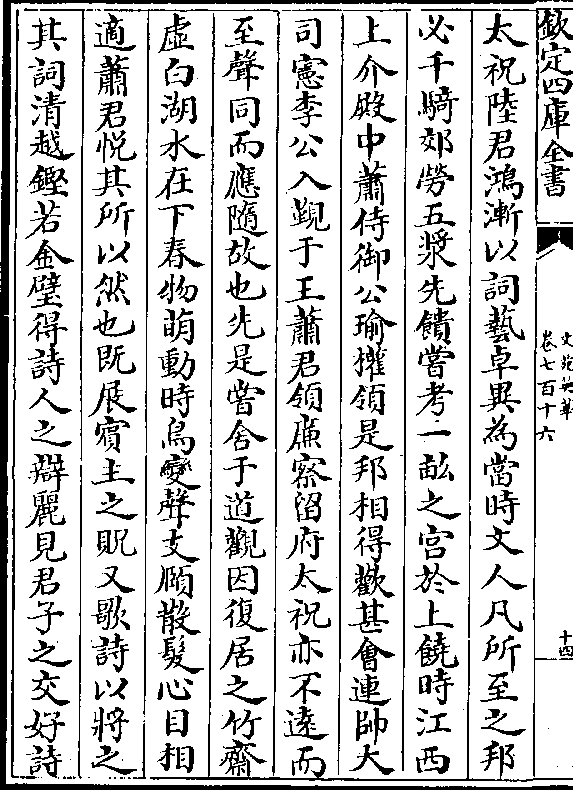 欽定四庫全書
文苑英華
卷七百十六
十四
太祝陸君鴻漸以詞藝卓異為當時文人凡所至之邦
必千騎郊勞五漿先饋嘗考一畝之宮於上饒時江西
上介殿中蕭侍御公瑜權領是邦相得歡甚會連帥大
司憲李公入覲于王蕭君領廉察留府太祝亦不遠而
至聲同而應隨故也先是嘗舍于道觀因復居之竹齋
虛白湖水在下春物萌動時鳥變聲支頤散髮心目相
適蕭君悅其所以然也既展賓主之貺又歌詩以將之
其詞清越鏗若金璧得詩人之辯麗見君子之交好詩